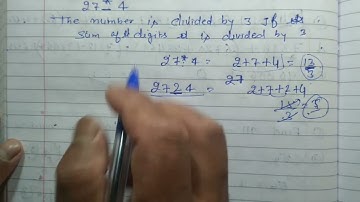 27*4
*The number is divided by 3. If
Sum of digits it is divided by 3
27*4 = 2+7+4 = 13/3
27
2724 = 2+7+2+4
15/3 = 5